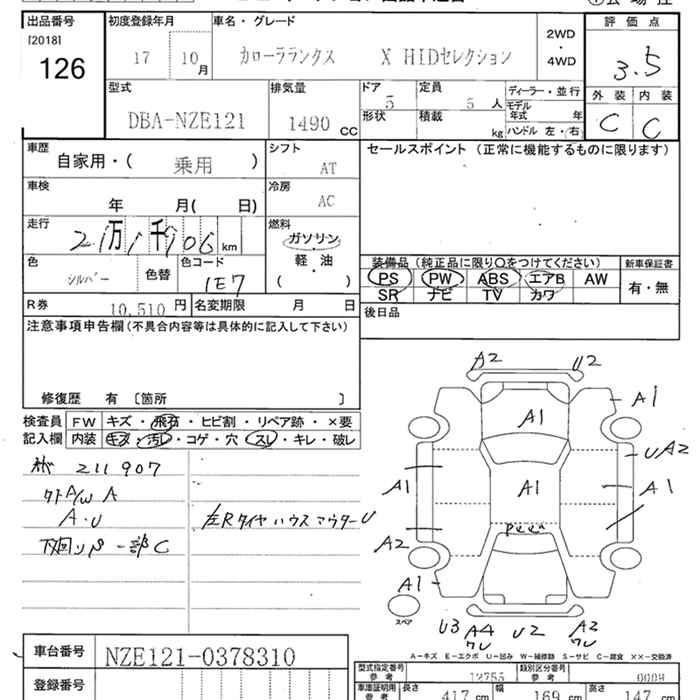 出品番号 初度登録年月 車名・グレード 2WD・4WD 評価点
[2018] 126 17 10月 カローラランクス X HIDセレクション 3.5
外装 内装
C C
型式 排気量 ドア 定員 ディーラー・並行
DBA-NZE121 1490 CC 5 5 人 モデル年式 年
形状 積載 kg ハンドル 左・右
車歴 シフト セールスポイント (正常に機能するものに限ります)
自家用・( 乗用 ) AT
車検 冷房
年 月( 日) AC
走行 燃料
21万1千906 km ガソリン
軽・油
( ・ )
色 シルバー 色替 色コード 1E7
装装備品 (純正品に限り○をつけてください) 新車保証書
PS PW ABS エアB AW 有・無
SR ナビ TV カワ
R券 10,510 円 名変期限 月 日 後日品
注意事項申告欄 (不具合内容等は具体的に記入して下さい)
修復歴 有 [箇所 ]
検査員 FW キズ・飛石・ヒビ割・リペア跡・×要
記入欄 内装 キズ・汚レ・コゲ・穴・スレ・キレ・破レ
211907
A/W A
A・U
左Rタイヤハウスアウター U
一部C
A2 U2
A1
A1
UA2
A1 A1 A1
A2
A1
U3 A4 U2 A2
スペア
A-キズ E-エクボ U-凹み W-補修跡 S-サビ C-腐食 ××-交換済
車台番号 NZE121-0378310
登録番号
型式指定番号 参考 12755 類別区分番号 参考 0008
車庫証明用 参考 長さ 417 cm 幅 169 cm 高さ 147 cm